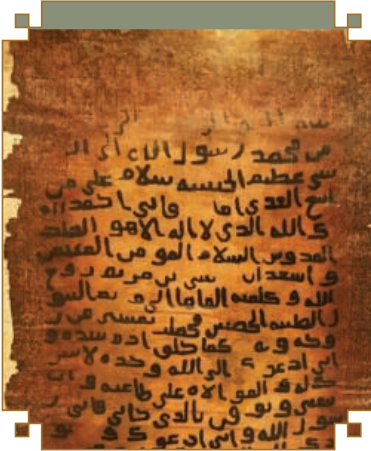 من محمد رسول الله الى ال
شي عظيم الحبشة سلام على من
اتبع الهدى اما فاني احمد اليـ
ك الله الذي لا اله الا هو الملك
القدوس السلام المومن المهيمن
و اشهد ان عيسى بن مريم روح
الله و كلمته القاها الى مريم البتو
ل الطيبه الحصينه فحملت بعيسى من ر
وحه و كما خلق ادم بيده و
اني ادعوك الى الله وحده لا شر
يك له و الموالاه على طاعته و ان
تتبعني و توقن بالذي جاني فاني ر
سول الله و اني ادعوك و